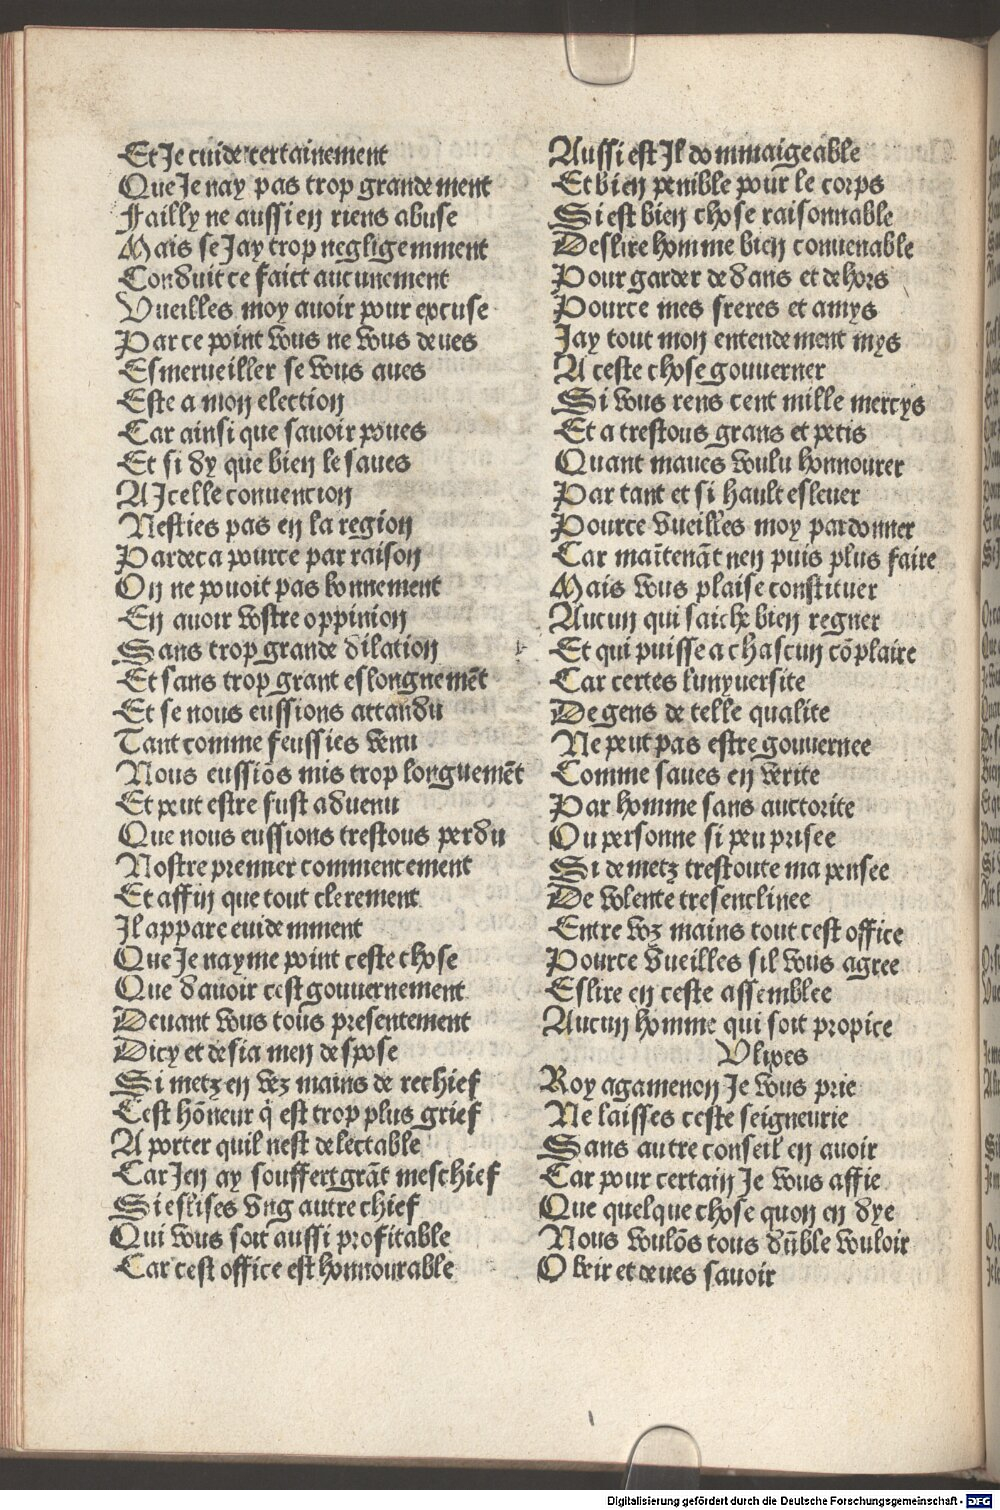 Et Je cuide certainement
Que Je nay pas trop grandement
Failly ne aussi en riens abuse
Mais se Jay trop negligemment
Conduit ce faict aucunement
Vueilles moy auoir pour excuse
Par ce point vous ne vous deues
Esmerueiller se vous aues
Este a mon election
Car ainsi que sauoir poues
Et si dy que bien le saues
A Jcelle conuencion
Nesties pas en la region
Pardeca pource par raison
On ne pouoit pas bonnement
En auoir vostre oppinion
Sans trop grande dilation
Et sans trop grant eslongnemēt
Et se nous eussions attandu
Tant comme feussies venu
Nous eussiōs mis trop longuemēt
Et peut estre fust aduenu
Que nous eussions trestous perdu
Nostre premier commencement
Et affin que tout clerement
Jl appare euidemment
Que Je nayme point ceste chose
Que dauoir cest gouuernement
Deuant vous tous presentement
Dicy et desia men despose
Si metz en vez mains de rechief
Cest hōneur q̄ est trop plus grief
A porter quil nest delectable
Car Jen ay souffert grāt meschief
Si eslises vng autre chief
Qui vous soit aussi profitable
Car cest office est honnourable
Aussi est Jl dommaigeable
Et bien penible pour le corps
Si est bien chose raisonnable
Deslire homme bien conuenable
Pour garder dedans et dehors
Pource mes freres et amys
Jay tout mon entendement mys
A ceste chose gouuerner
Si vous rens cent mille mercys
Et a trestous grans et petis
Quant maues voulu honnourer
Par tant et si hault esleuer
Pource vueilles moy pardonner
Car maītenāt nen puis plus faire
Mais vous plaise constituer
Aucun qui saiche bien regner
Et qui puisse a chascun cōplaire
Car certes lunyuersite
De gens de telle qualite
Ne peut pas estre gouuernee
Comme saues en verite
Par homme sans auctorite
Ou personne si peu prisee
Si demetz trestoute ma pensee
De volente tresenclinee
Entre voz mains tout cest office
Pource vueilles sil vous agree
Eslire en ceste assemblee
Aucun homme qui soit propice
Vlixes
Roy agamenon Je vous prie
Ne laisses ceste seigneurie
Sans autre conseil en auoir
Car pour certain Je vous affie
Que quelque chose quon en dye
Nous voulōs tous dūble vouloir
Obeir et deues sauoir
Digitalisierung gefördert durch die Deutsche Forschungsgemeinschaft - DFG